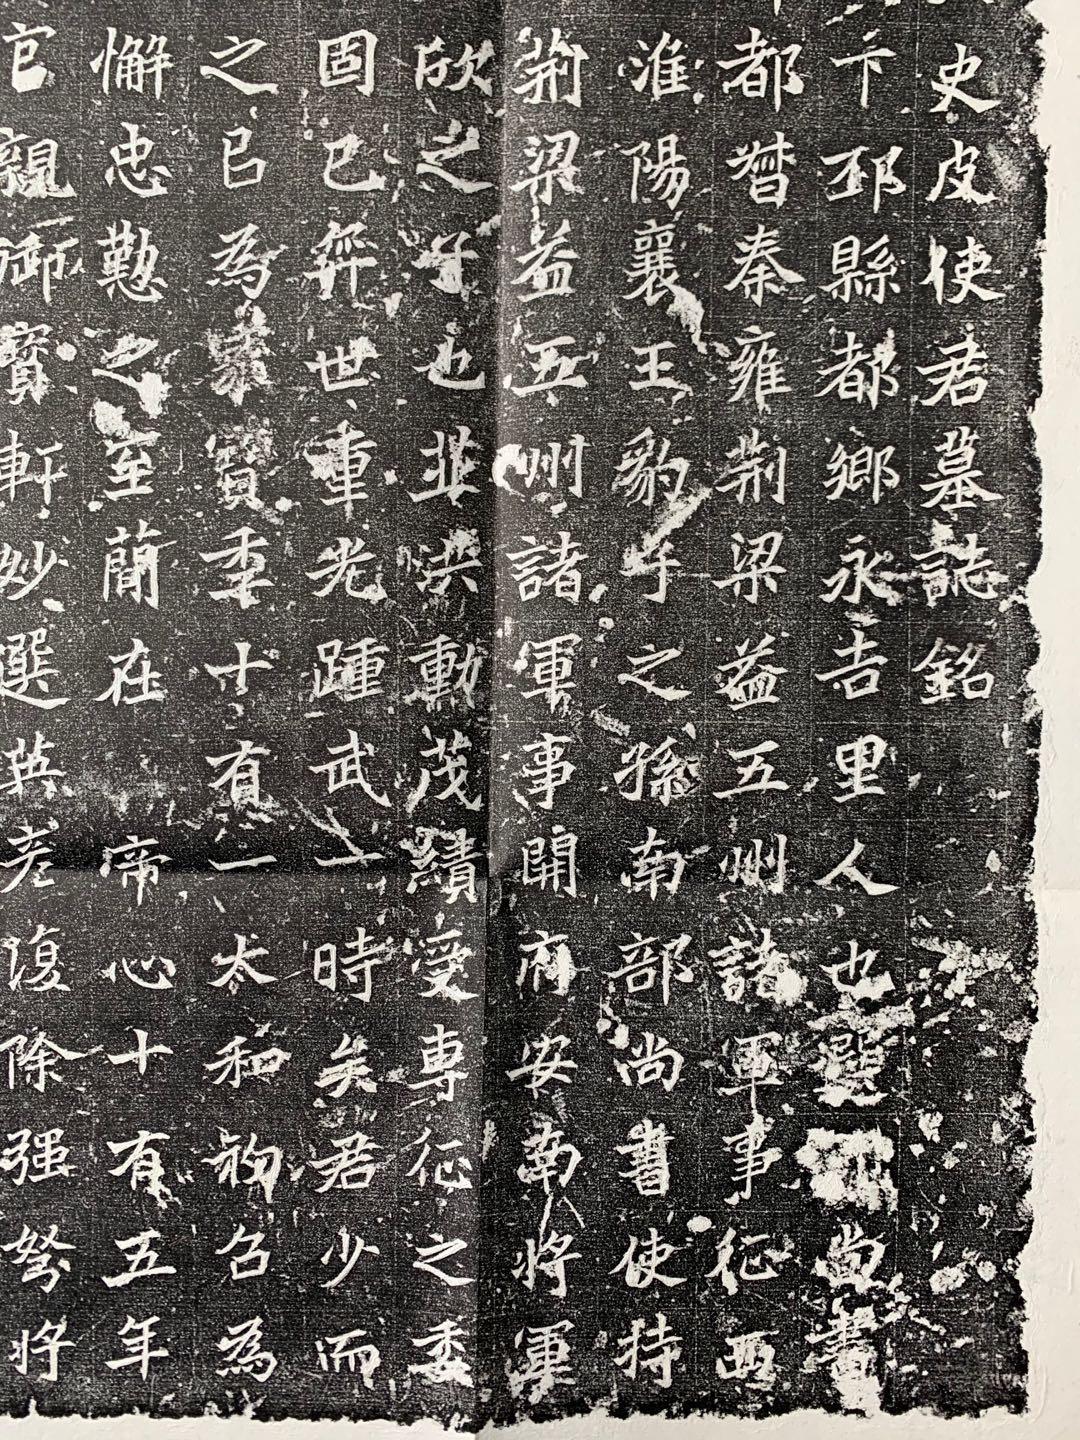 史皮使君墓誌銘
下邳縣都鄉永吉里人也尚書
都督秦雍荊梁益五州諸軍事征西
淮陽襄王豹子之孫南部尚書使持
荊梁益五州諸軍事開府安南將軍
欣之子也韮洪勳茂績受專征之委
固已弈世重光踵武一時矣君少而
之已為寶年十有一太和初召為
懈忠懃之至簡在帝心十有五年
官親御寶軒妙選英彥復除强弩將